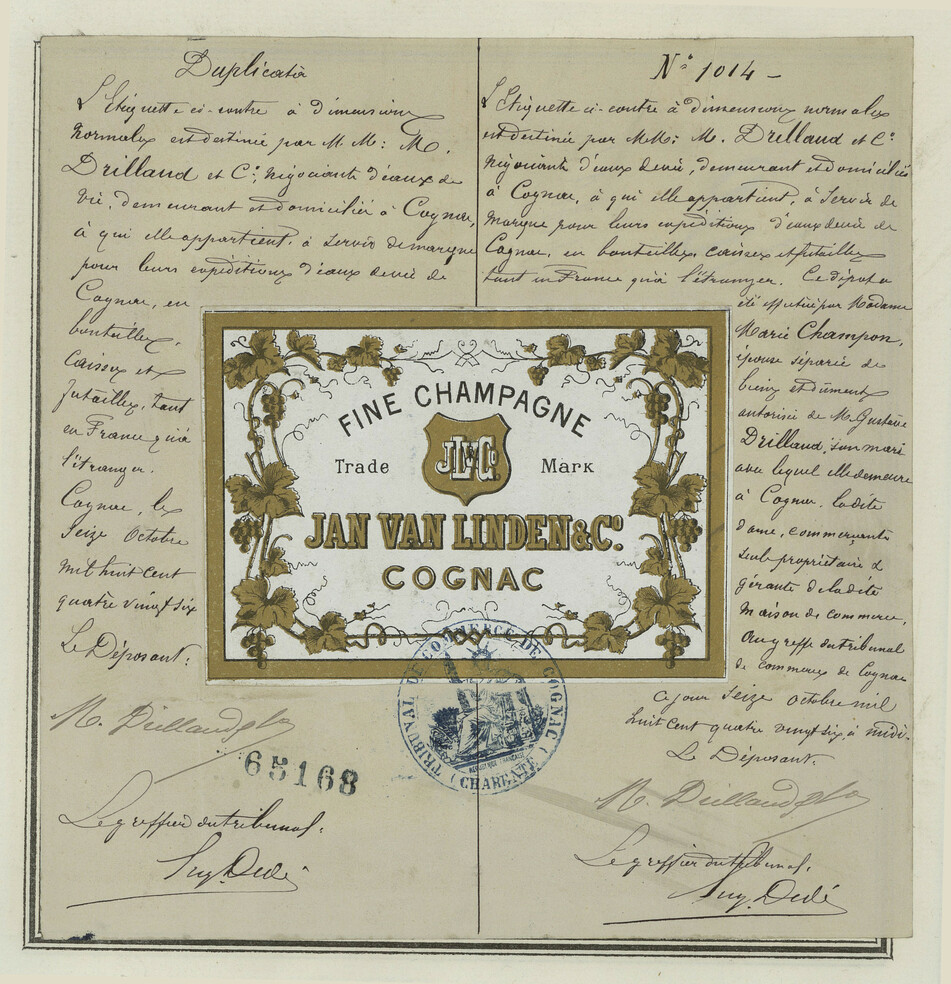 Duplicata
L'Etiquette ci-contre à dimensions
normales est destinée par M.M: M.
Drilland et Cº, négociants d'eaux de
vie, demeurant et domiciliés à Cognac,
à qui elle appartient, à servir de marque
pour leurs expéditions d'eaux de vie de
Cognac, en
bouteilles,
caisses et
futailles, tant
en France qu'à
l'étranger.
Cognac, le
Seize Octobre
mil huit cent
quatre vingt six
Le Déposant:
M. Drilland & Co
65168
Le greffier du tribunal.
Aug. Dedé
Nº 1014 -
L'Etiquette ci-contre à dimensions normales
est destinée par MM: M. Drilland et Cº
négociants d'eaux de vie, demeurant et domiciliés
à Cognac, à qui elle appartient, à servir de
marque pour leurs expéditions d'eaux de vie de
Cognac, en bouteilles, caisses et futailles
tant en France qu'à l'étranger. Ce dépôt a
été effectué par Madame
Marie Champon,
épouse séparée de
biens et dûment
autorisée de M. Gustave
Drilland, son mari
avec lequel elle demeure
à Cognac, la dite
dame, commerçante
seule propriétaire &
gérante de la dite
maison de commerce,
au greffe du tribunal
de commerce de Cognac
ce jour Seize octobre mil
huit cent quatre vingt six à midi.
Le Déposant.
M. Drilland & Co
Le greffier du tribunal.
Aug. Dedé
FINE CHAMPAGNE
Trade Mark
JAN VAN LINDEN & Cº.
COGNAC
TRIBUNAL DE COMMERCE DE COGNAC
(CHARENTE)
REPUBLIQUE FRANCAISE